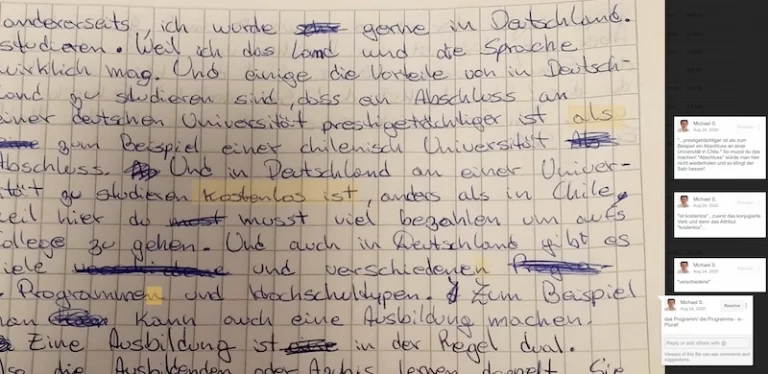 andererseits, ich würde gerne in Deutschland.
studieren. Weil ich das Land und die Sprache
wirklich mag. Und einige die Vorteile von in Deutsch-
land zu studieren sind, dass an Abschluss an
einer deutschen Universität prestigeträchtiger ist als
zum Beispiel einer chilenisch Universität
Abschluss. Und in Deutschland an einer Univer-
tät zu studieren kostenlos ist, anders als in Chile
weil hier du musst viel bezahlen um aufs
College zu gehen. Und auch in Deutschland gibt es
viele und verschiedenen
Programmen und Hochschultypen. Zum Beispiel
man kann auch eine Ausbildung machen.
Eine Ausbildung ist in der Regel dual.
also die Ausbildenden oder Azubis lernen doppelt. Sie
Michael S.
Aug 24, 2020
"...prestigeträchtiger ist als zum
Beispiel ein Abschluss an einer
Universität in Chile." So musst du das
machen! "Abschluss" würde man hier
nicht wiederholen und so klingt der
Satz besser!
Michael S.
Aug 24, 2020
"ist kostenlos"...zuerst das konjugierte
Verb und dann das Attribut
"kostenlos"...
Michael S.
Aug 24, 2020
"verschiedene"
Michael S.
Aug 24, 2020
Resolve
das Programm/ die Programme - e-
Plural!
Reply or add others with @
Viewers of this file can see comments and
suggestions.